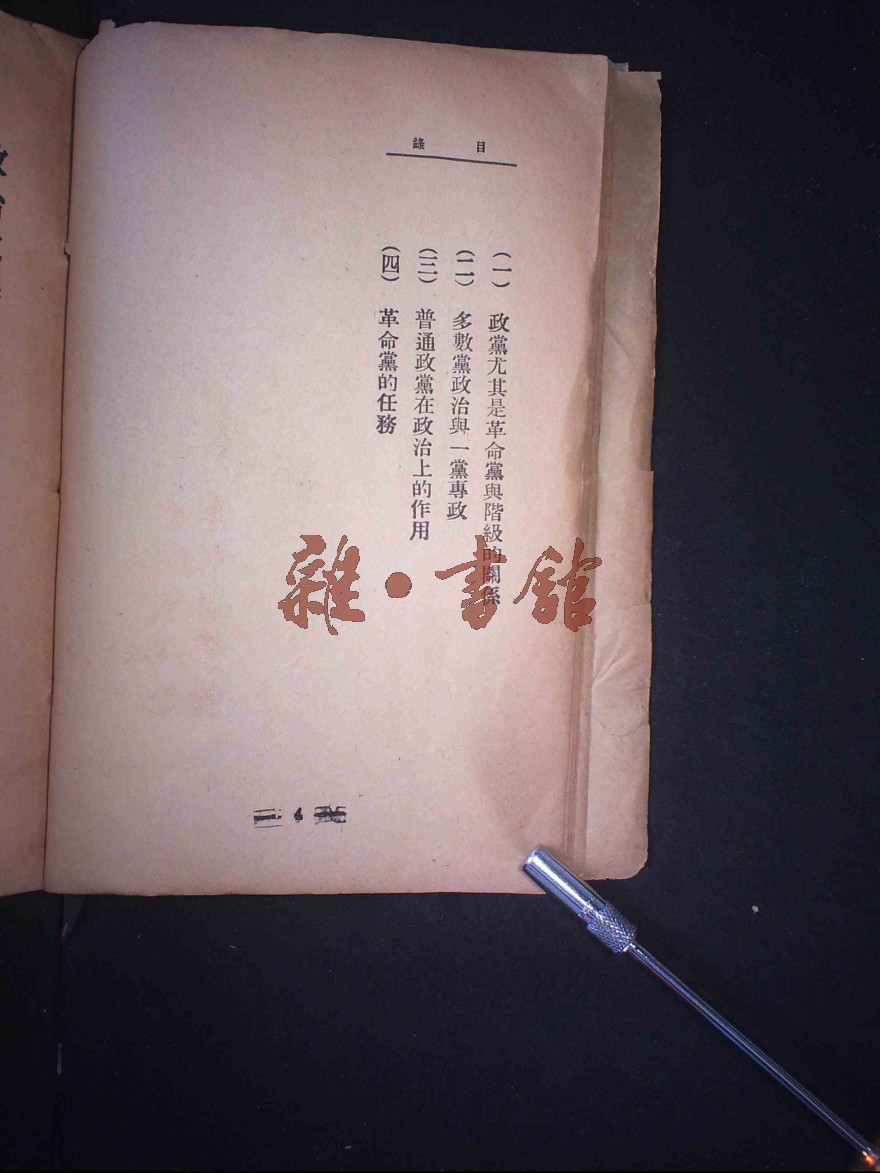 目錄
(一) 政黨尤其是革命黨與階級的關係
(二) 多數黨政治與一黨專政
(三) 普通政黨在政治上的作用
(四) 革命黨的任務
雜·書館
6